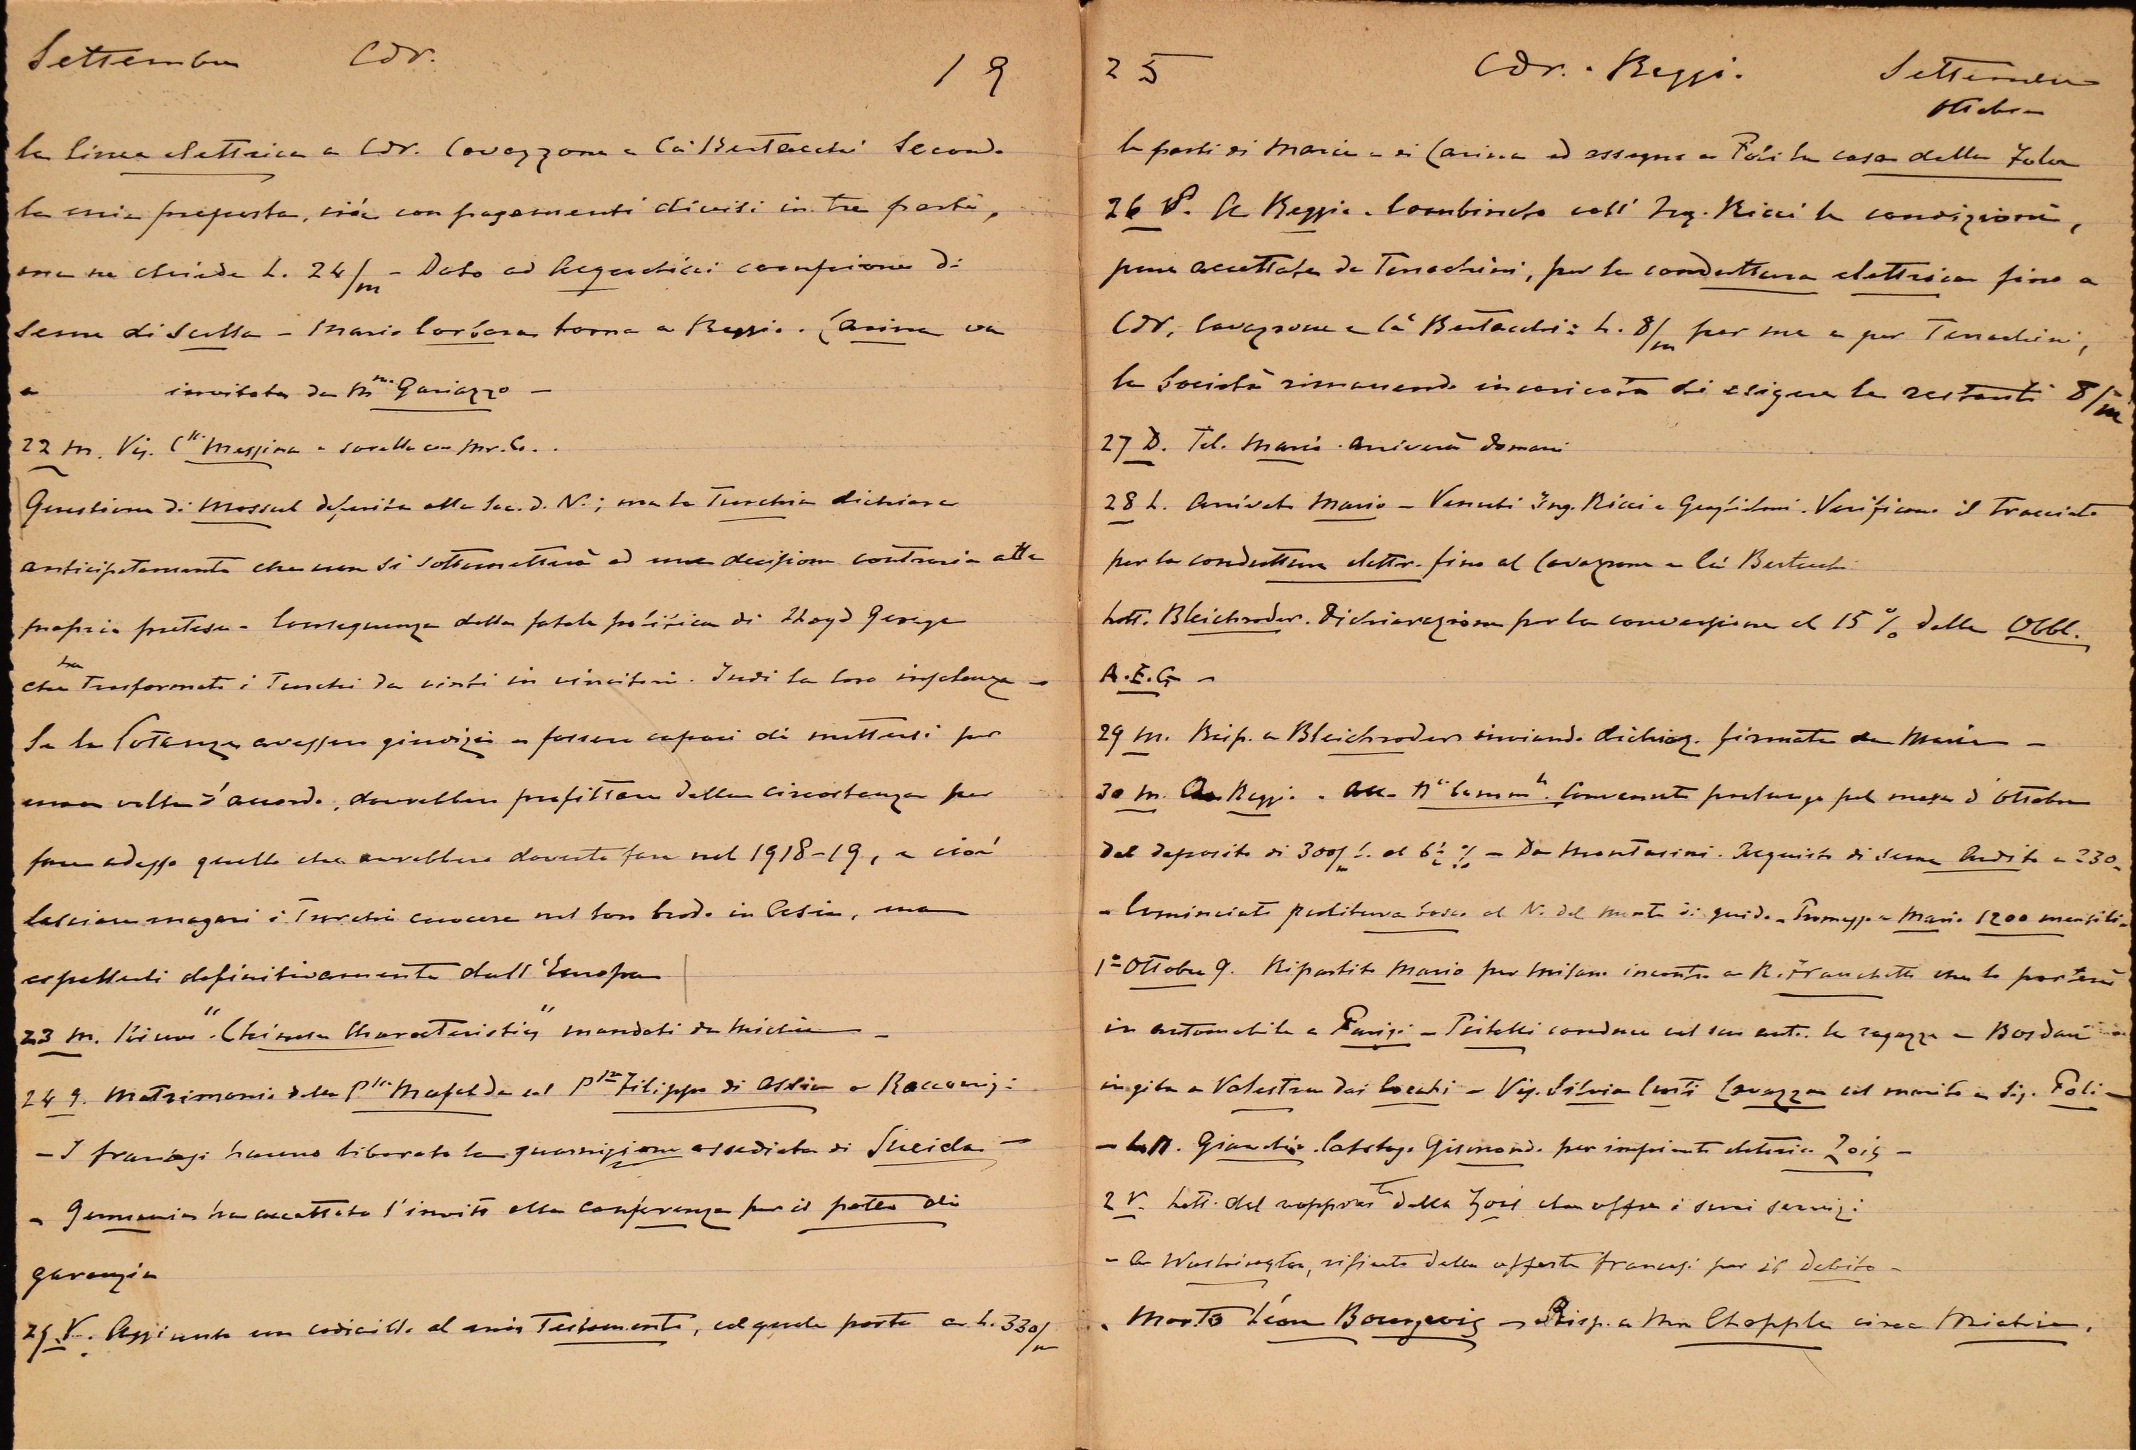 Settembre Cdr. 19
la linea elettrica a Cdr. Cavazzone e Ca' Bertacchi secondo
la mia proposta, cioè con pagamenti divisi in tre parti,
ma ne chiede L. 24/m - Dato ad campione di
seme di Sulla - Mario torna a Reggio. Carina va
a invitata da Mme Gariazzo -
22 M. Vis. Css. Messina e sorella
Questione di Mossul deferita alla Soc. d. N.; ma la Turchia dichiara
anticipatamente che non si sottometterà ad una decisione contraria alle
proprie pretese - Conseguenza della fatale politica di Lloyd George
che ha trasformato i Turchi da vinti in vincitori. Indi la loro insolenza -
Se le Potenze avessero giudizio e fossero capaci di mettersi per
una volta d'accordo, dovrebbero profittare della circostanza per
fare adesso quello che avrebbero dovuto fare nel 1918-19, e cioè
lasciare magari i Turchi cuocere nel loro brodo in Asia, ma
espellerli definitivamente dall'Europa
23 M. "Chinese Characteristics" mandati da Michie -
24 G. Matrimonio della Pssa Mafalda col Pipe Filippo di Assia a Racconigi
- I francesi hanno liberato la guarnigione assediata di Sueida -
- Germania ha accettato l'invito alla conferenza per il patto di
garanzia
25 V. Aggiunto un codicillo al mio Testamento, col quale porto a L. 330/m
25 Cdr. - Reggio. Settembre
Ottobre
la parti di Maria e di Carina ed assegno a Poli la casa della
26 S. A Reggio. Combinato coll' Ing. Ricci le condizioni,
pure accettate da Tenachini, per la conduttura elettrica fino a
Cdr, Cavazzone e Ca' Bertacchi: L. 8/m per me e per Tenachini,
la Società rimanendo incaricata di esigere le restanti 8/m
27 D. Tel. Mario. Arriverà domani
28 L. Arrivato Mario - Venuti Ing. Ricci e Guglielmi. Verificano il tracciato
per la conduttura elettr. fino al Cavazzone e Ca' Bertacchi
Lett. Bleichroder. Dichiarazione per la conversione al 15% delle Obbl.
A.E.G -
29 M. Risp. a Bleichroder inviando dichiaz. firmata da Maria -
30 M. A Reggio. Alla Comm. Convenuto prolungo pel mese d'ottobre
del deposito di 300/m L. al 6½ % - Da Montasini. Acquisto di seme Ardito a 230 -
- Cominciato pulitura bosco al N. del monte di guido - Promesso a Mario 1200 mensili -
1° Ottobre G. Ripartito Mario per Milano incontro a R. Franchetti che lo porterà
in automobile a Parigi - conduce col suo auto. le ragazze e Bosdari
in gita a Valestra dai - Vis. Silvia Cavazza col marito e sig. Poli -
- Catalogo Gismondi per impianto elettrico -
2 V. Lett. del rappres. della che offre i suoi servizi
- A Washington, rifiuto delle offerte francesi per il debito -
- Morto Léon Bourgeois - Risp. a Mr Chapple circa Michie.